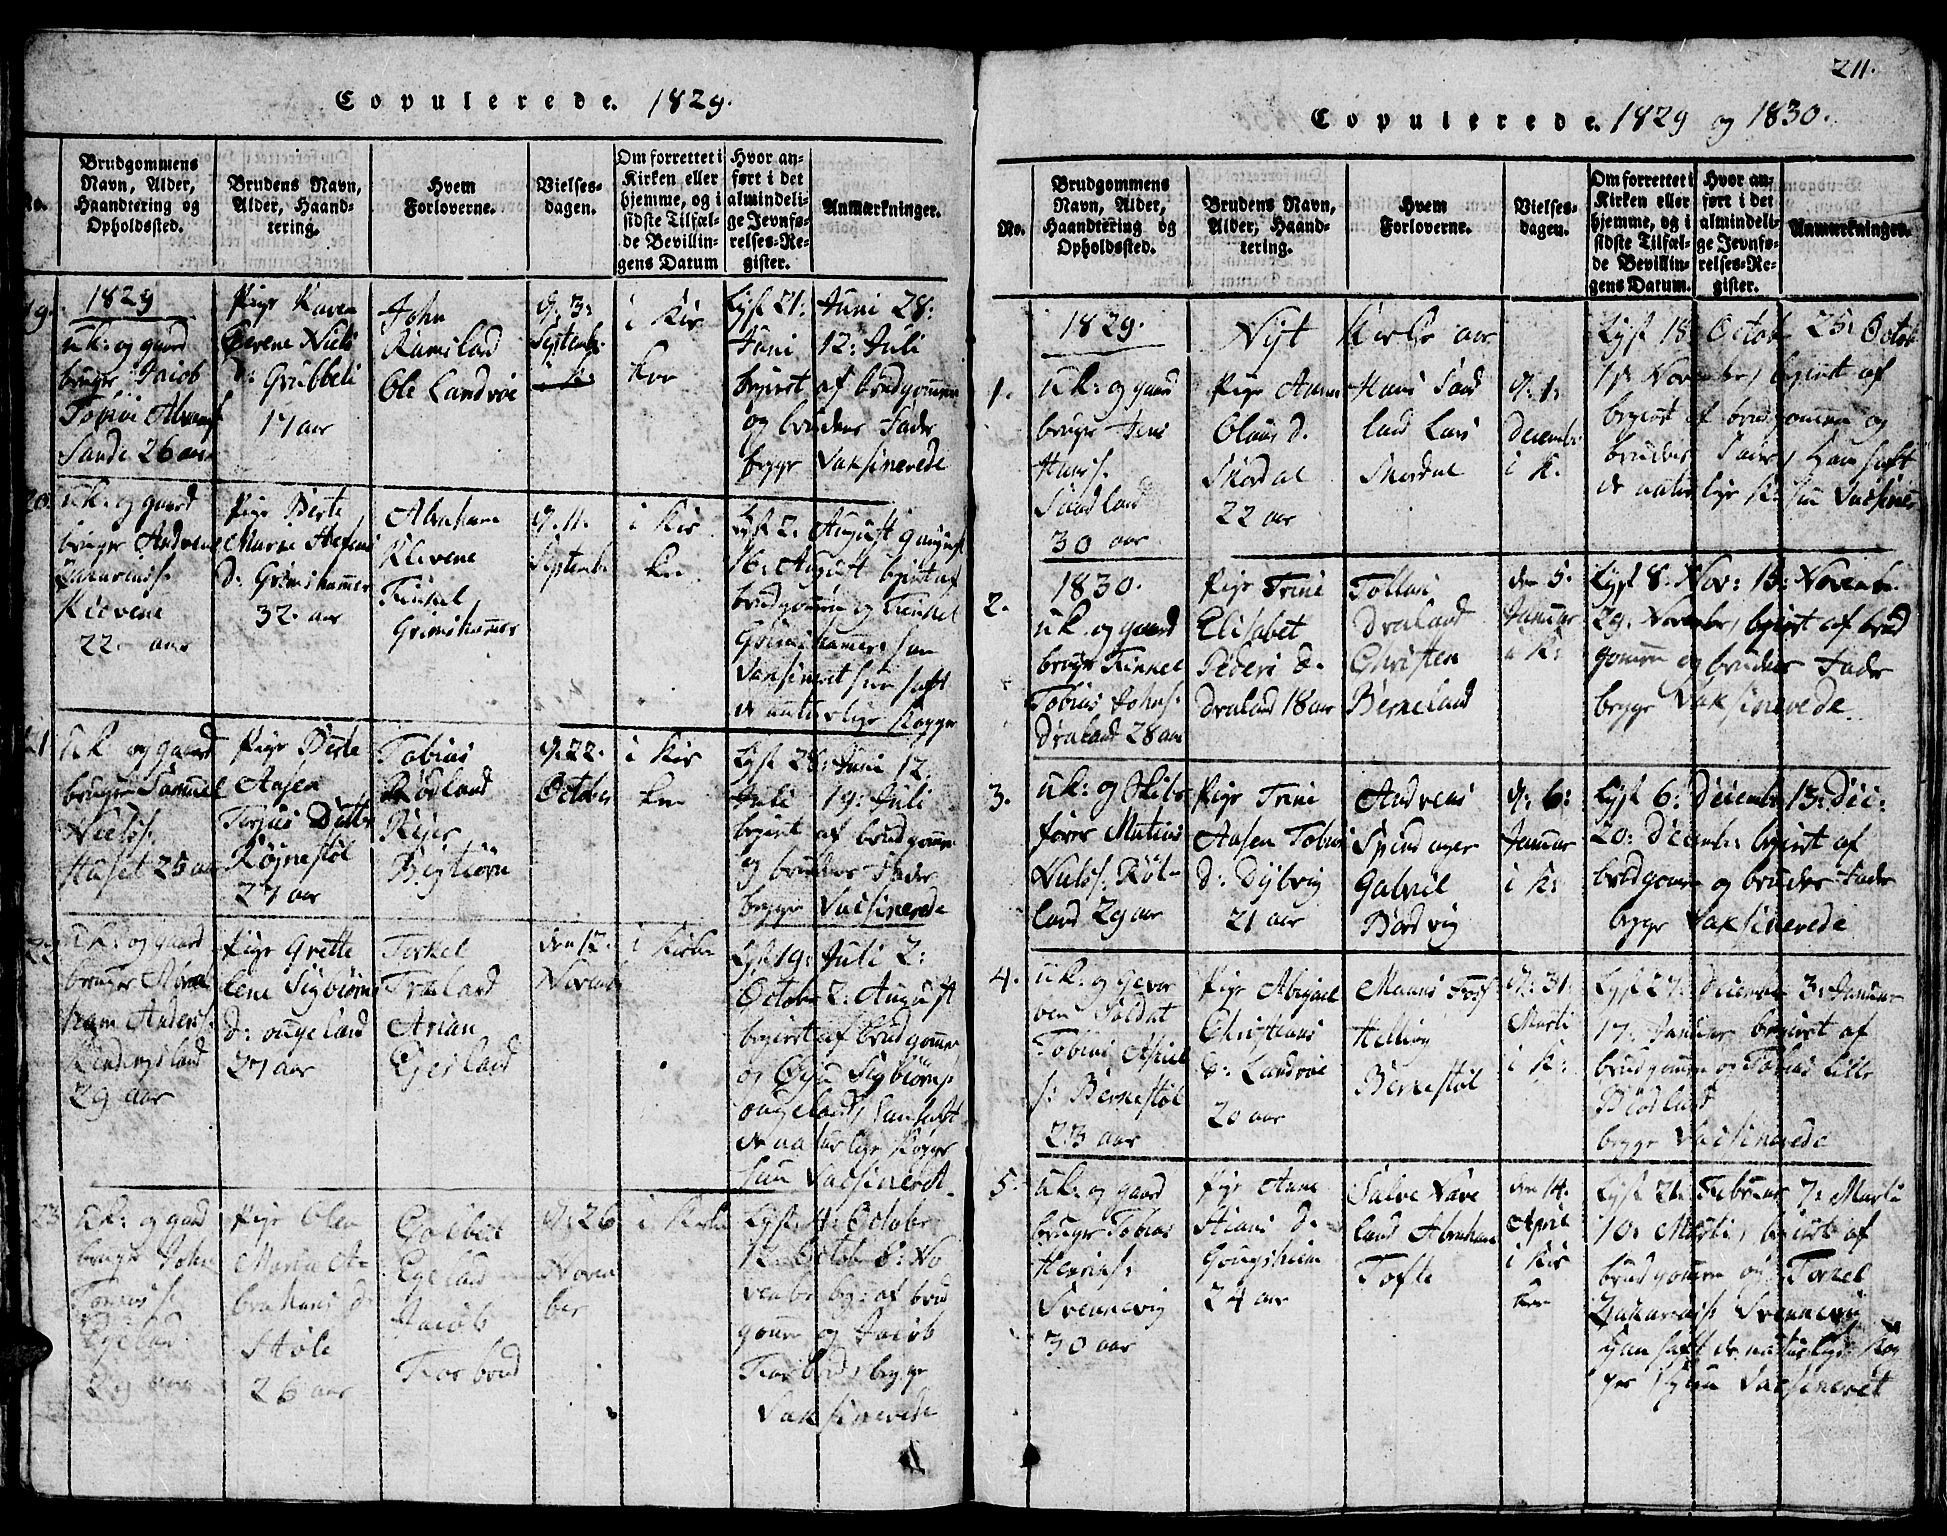 Copulerede. 1829.
No.
Brudgommens
Navn, Alder,
Haandtering og
Opholdssted.
Brudens Navn,
Alder, Haand-
tering.
Hvem
Forloverne.
Vielses-
dagen.
Om forrettet i
Kirken eller
hjemme, og i
sidste Tilfæl-
de Bevillin-
gens Datum
Hvor an-
ført i det
almindeli-
ge Jevnfø-
relses-Re-
gister.
Anmærkninger.
19.
1829
uk: og gaard
bruger Jacob
Sande 26 aar
Pige Karen
Serene Niels
d: Grubbeli
17 aar
John
Ramsland
Ole Landvøe
d: 3:
Septembr
i Kir
ken
Lyst 21: Juni 28:
Juni 12: Juli
begiert af brudgommen
og brudens Fader
begge Vaksinerede
20.
uk: og gaard
bruger Andreas
Zakariæs.
Klevene
22 aar
Pige Berte
Marne Stefens
d: Grimshammer
32 aar
Abraham
Klevene
Tinkel
Grimshammer
d: 11.
Septembr
i Kir
ken
Lyst 2: August 9 august
16: August begiert af
brudgommen og Tinkel
Grimshammer, han
Vaksineret hun haft
de naturlige Kopper
21
uk og gaard
bruger Samuel
Nielss.
Haset 25 aar
Pige Berte
Aasen
Terjus Datter
Røjnestøl
27 aar
Tobias
Rødland
Rejer
Bigtiørn
d. 22.
October
i Kir
ken
Lyst 28: Juni 12.
Juli 19: Juli
begiert af brudgommen
og brudens Fader
begge Vacsinerede
22.
uk: og gaard
bruger Abra
ham Anders:
29 aar
Pige Grette
Lene Sigbiørns
d: ougeland
27 aar
Terkel
Træland
Arian
Egeland
den 12.
Novemb
i Kirken
Lyst 19: Juli 2:
Octobr 2: August
begiert af brudgommen
og Sigbiørns:
ougeland, han haft
de naturlige Kopper
hun Vacsineret.
23
uk: og gaard
bruger John
Egeland
29 aar
Pige Olen
Maria A-
brahams d:
Støle
26 aar
Egeland
Jacob
Forbrud
d: 26
Novem
ber
i Kirken
Lyst 4: October
12 October 8: No
vember beg: af brud
gommen og Jacob
Forbrud, begge
Vaksinerede
211.
Copulerede. 1829 og 1830.
No.
Brudgommens
Navn, Alder,
Haandtering og
Opholdssted.
Brudens Navn,
Alder, Haand-
tering.
Hvem
Forloverne.
Vielses-
dagen.
Om forrettet i
Kirken eller
hjemme, og i
sidste Tilfæl-
de Bevillin-
gens Datum.
Hvor an-
ført i det
almindeli-
ge Jevnfø-
relses-Re-
gister.
Anmærkninger.
1829.
Nyt Kirke aar
1.
uk: og gaard
bruger Jens
Hanss.
Sandland
30 aar
Pige Anne
Olaus d.
Skordal
22 aar
Hans Sand
land Lars
Skordal
d: 1:
Decembr
i K.
Lyst 18 October 25: October
1: November, begiert af
brudgommen og
brudens Fader, han haft
de naturlige K: hun Vacsiner
2.
1830.
uk. og gaard
bruger Tinkel
Tobias Johns:
Draland 28 aar
Pige Trine
Elisabet
Peders d.
Draland 18 aar
Draland
Christen
Berneland
den 5.
Januar
i K:
Lyst 8: Nov: 15: Novembr
29. November, begiert af brud
gommen og brudens Fader
begge Vaksinerede
3.
uk: og Skibs
fører Matias
Nielss: Røt-
land 29 aar
Pige Trine
Aasen Tobias
d: Dybvig
21 aar
Andreas
Spindanger
Gabriel
Bordvig
d: 6:
Januar
i K:
Lyst 6: December 13: Dec:
20: December begiert af
brudgommen og brudens Fader
begge Vaksinerede
4.
uk: og gevor
ben Soldat
Tobias
s: Bernestøl
23 aar
Pige Abigael
Christians
d: Landvøe
20 aar
Hellsvig
Bernestøl
d: 31.
Marti
i K:
Lyst 27: December 3: Januar
17: Januar begiert af
brudgommen og Tobias Lille
Rødland
begge Vacsinerede
5.
uk: og gaard
bruger Tobias
Henriks:
Svennevig
30 aar
Pige Anne
Stians d.
Gougsheim
24 aar
Salve Nave
land Abraham
Tofte
den 14.
April
i Kir
ken
Lyst 21: Februar 7: Marti
10: Marti, begiert af
brudgommen og Torkel
Zakariæs: Svennevig
han haft de naturlige Kop
per hun Vacsineret